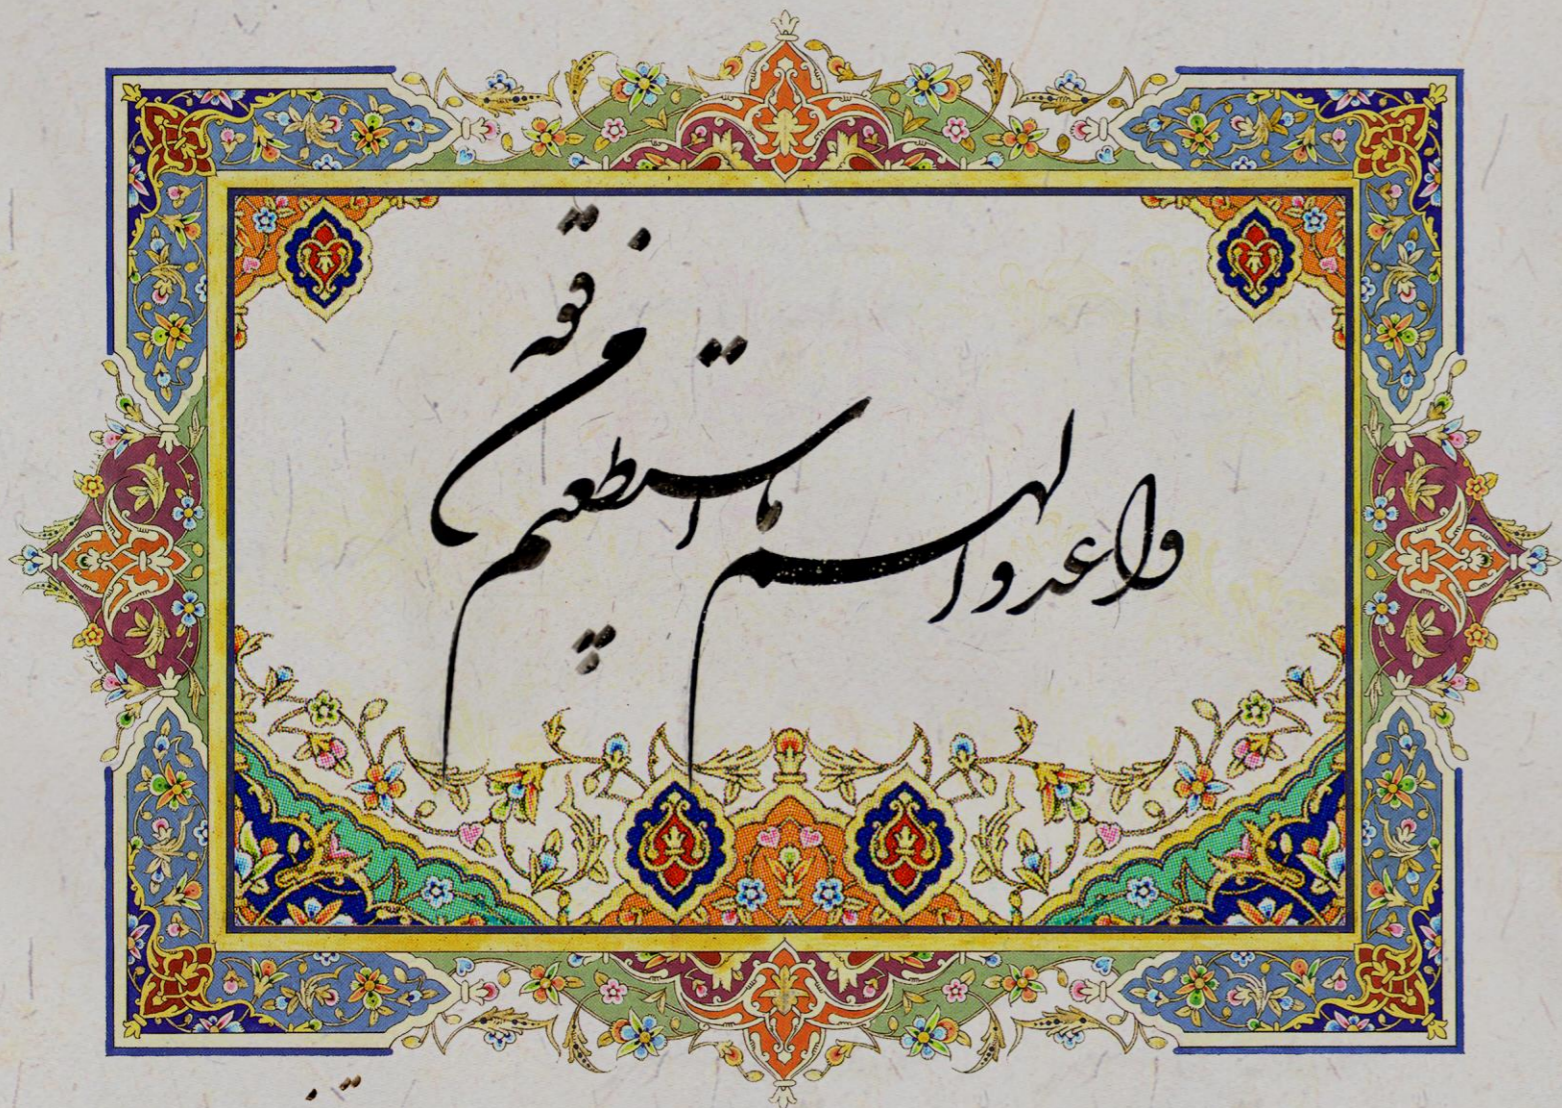 واعدوا لهم ما استطعتم من قوة